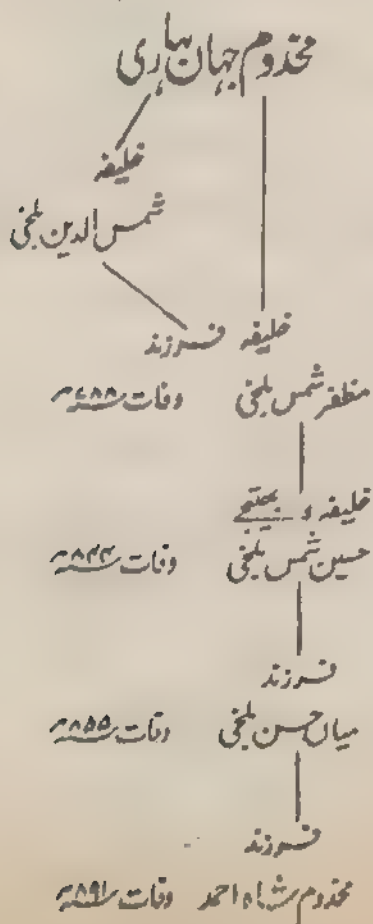 مخدوم جہاں بہاری
خلیفہ
شمس الدین بلخی
خلیفہ فرزند
مظفر شمس بلخی وفات ۷۸۸ھ
خلیفہ و بھتیجے
حسین شمس بلخی وفات ۸۴۴ھ
فرزند
میاں حسن بلخی وفات ۸۵۵ھ
فرزند
مخدوم شاہ احمد وفات ۸۹۱ھ